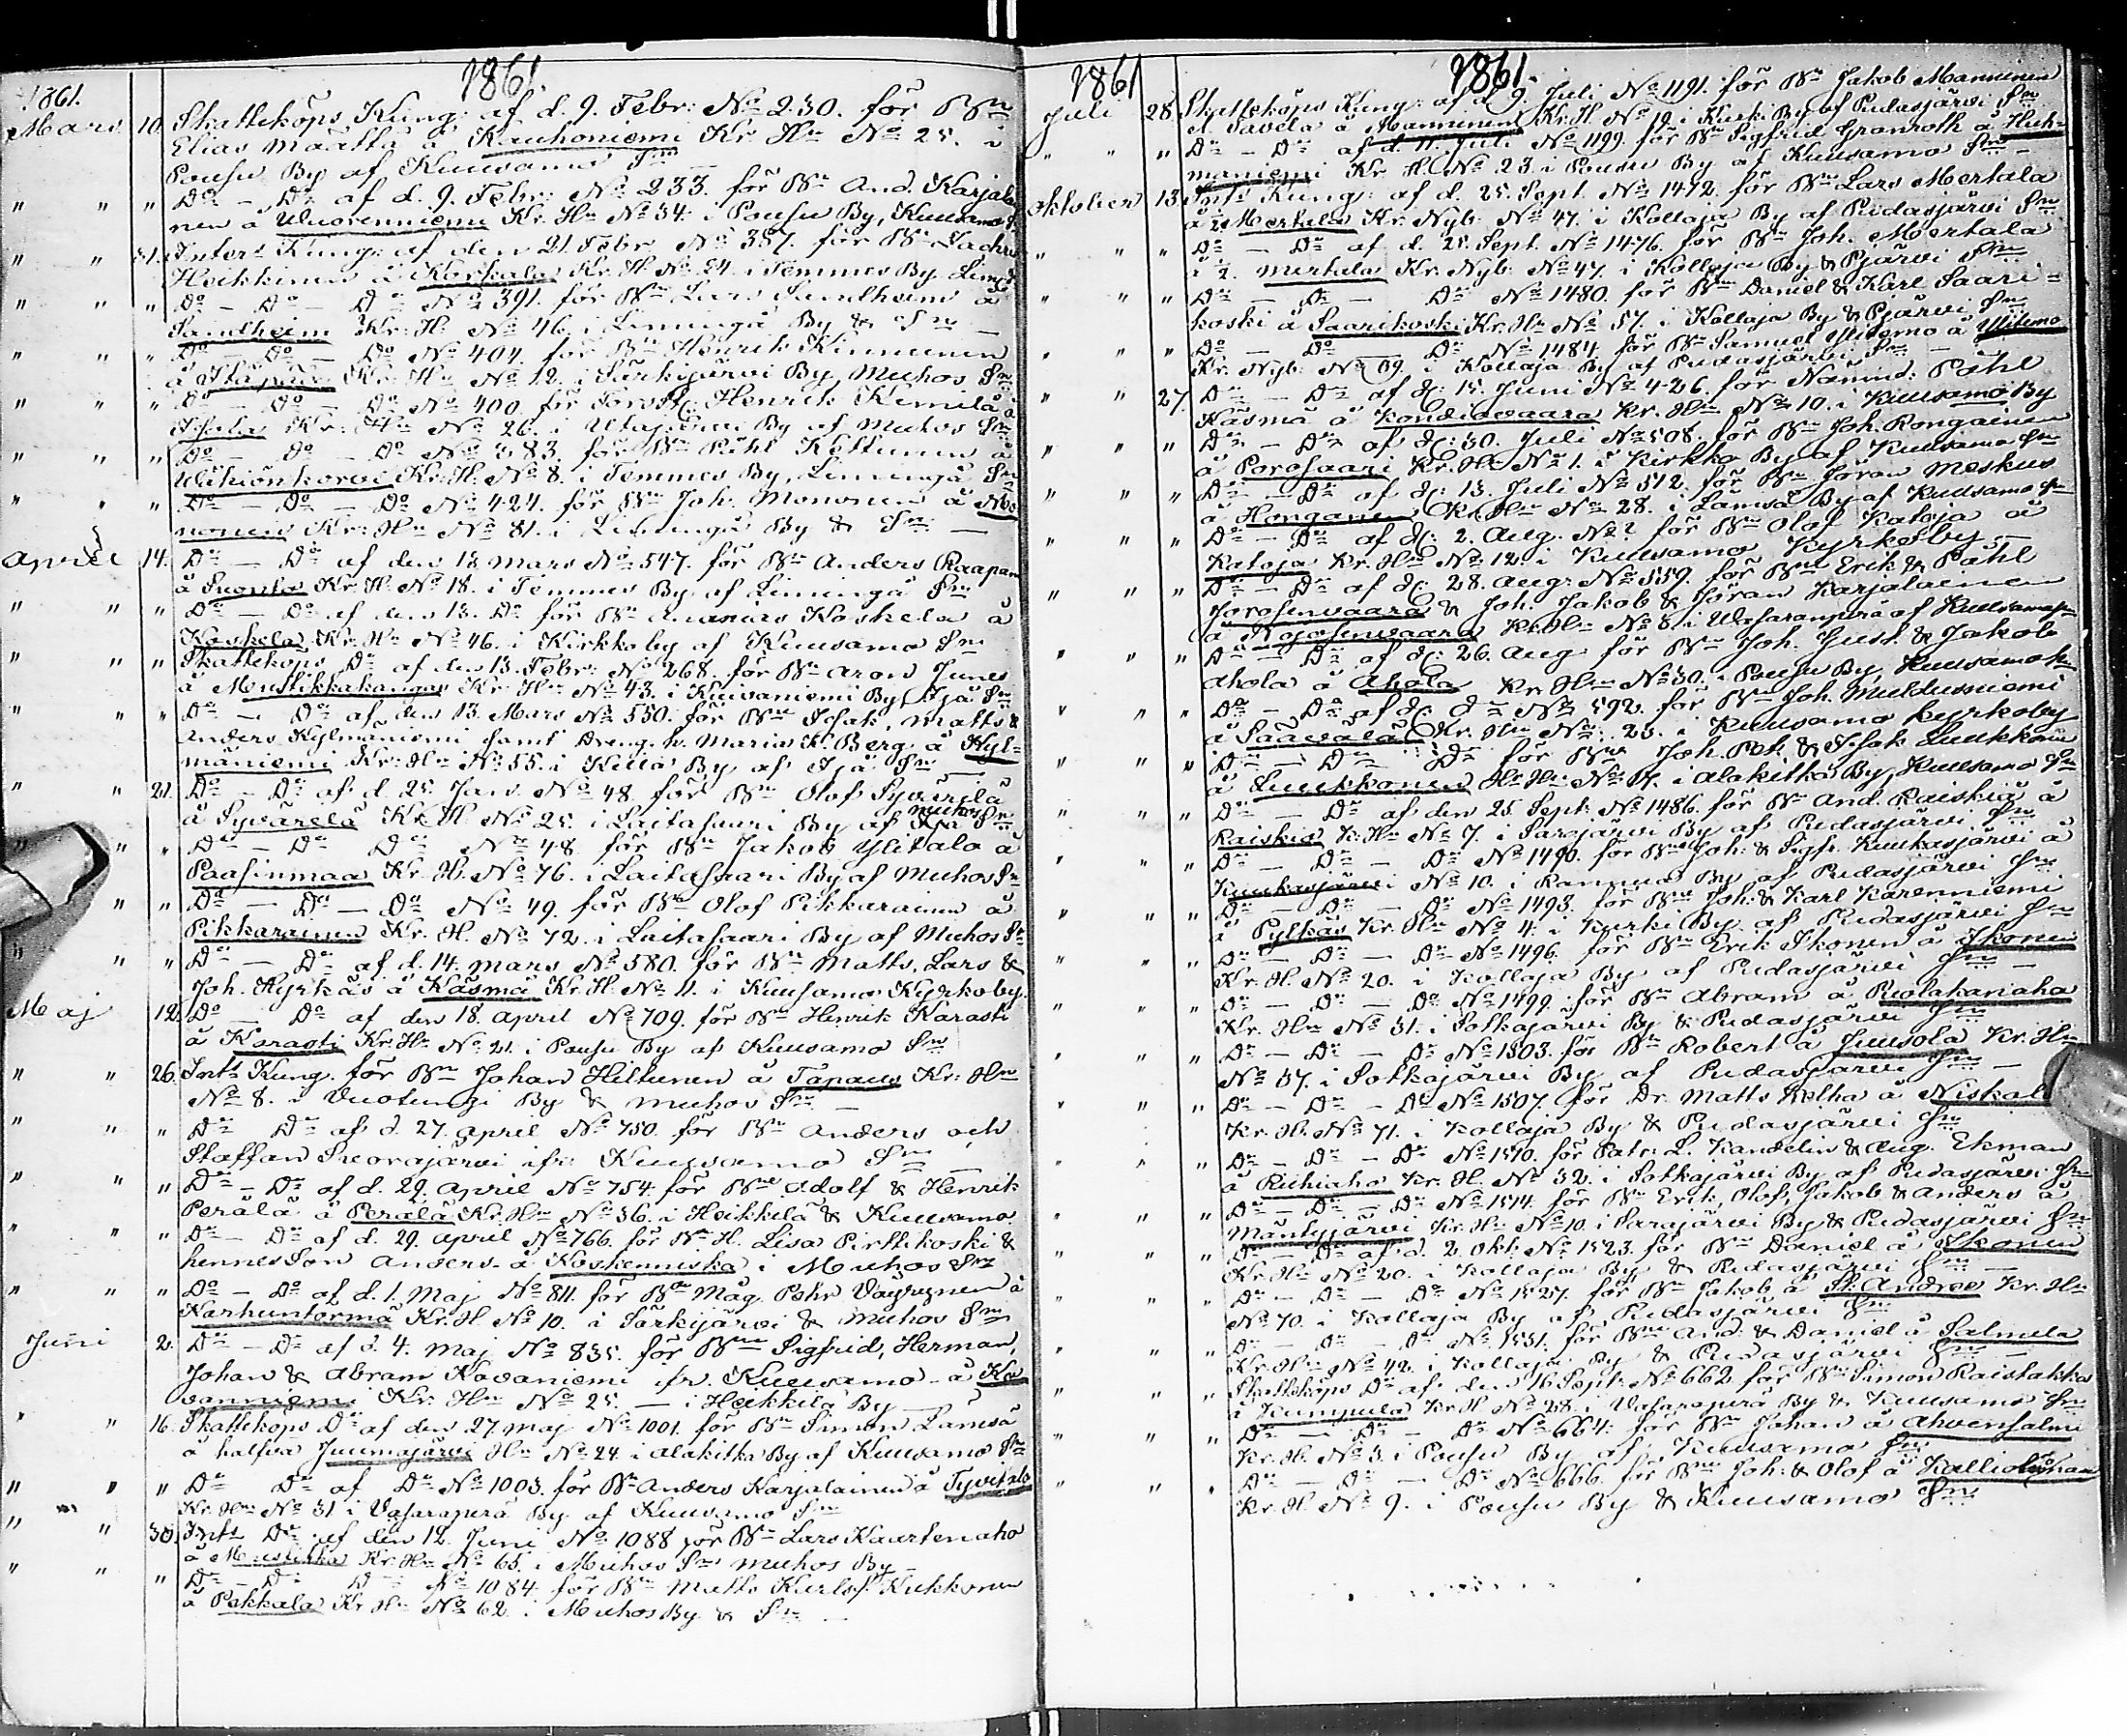 1861.
1861.
Mars 10. Skatteköps Kung: af d. 9. Febr: No 230. för Bn
Elias Määttä å Rauhoniemi Kr. Hn No 25. i
Pousu By af Kuusamo Sn
" " " Do - Do af d. 9. Febr: No 233. för Bn And. Karjalai
nen å Wuorenniemi Kr. Hn No 34. i Pousu By, Kuusamo S.
" " 31. Inters Kung: af den 21 Febr. No 387. för Bn Zachris
Heikkinen å Korkala Kr. H No 54. i Temmes By. Liminga S.
" " " Do - Do - Do No 391. för Bn Lars Sandheim å
Sandheim Kr: H: No 46. i Liminga By & Sn
" " " Do - Do - Do No 404. för Bn Henrik Kinnunen
å Itäpää Kr. Hn No 12. i Särkijärvi By, Muhos Sn
" " " Do - Do - Do No 400. för Torp: Henrik Kemilä å
Kr: Hn No 26. i Utajärvi By af Muhos Sn
" " " Do - Do - Do No 383. för Bn Påhl Kettunen å
Wihiönkorvi Kr. H. No 8. i Temmes By, Liminga Sn
" " " Do - Do - Do No 424. för Bn Joh. Mononen å Mo
nonen Kr: Hn No 81. i Liminga By & Sn
April 14. Do - Do af den 13 Mars No 547. för Bn Anders Raapan
å Suonta Kr. H. No 18. i Temmes By af Liminga Sn
" " " Do - Do af den 13. Do för Bn Ananias Koskela å
Koskela Kr. Hn No 46. i Kirkkoby af Kuusamo Sn
" " " Skatteköps Do af den 13. Febr: No 268. för Bn Aron Junes
å Mustikkakangas Kr. Hn No 43. i Kuivaniemi By, Ijä Sn
" " " Do - Do af den 13. Mars No 550. för Bn Isak, Matts &
Anders Kylmäniemi samt Dreng. h. Maria K. Berg å Kyl=
mäniemi Kr: Hn No 55. i Killa By af Ijä Sn
" " 21. Do - Do af d. 25 Jan. No 48. för Bn Olof Syvärilä
å Syvärilä Kr. H. No 25. i Laitasaari By af Muhos Sn
" " " Do - Do Do No 48. för Bn Jakob Ylitalo å
Paasinmaa Kr. H. No 76. i Laitasaari By af Muhos Sn
" " Do - Do - Do No 49. för Bn Olof Pikkarainen å
Pikkarainen Kr. H. No 72. i Laitasaari By af Muhos Sn
" " " Do - Do af d. 14. Mars No 580. för Bn Matts, Lars &
Joh. Hyrkäs å Käsmä Kr. H. No 11. i Kuusamo Kyrkoby.
Maj 12. Do Do af den 18 April No 709. för Bn Henrik Karasti
å Karasti Kr. Hn No 21. i Pousu By af Kuusamo Sn
" " 26. Ints Kung. för Bn Johan Hiltunen å Tapaus Kr: Hn
No 8. i Vuotungi By & Muhos Sn
" " " Do Do af d. 27. April No 750. för Bn Anders och
Staffan Suorajärvi ifr. Kuusamo Sn
" " " Do - Do af d. 29. April No 754. för Bn Adolf & Henrik
Perälä å Perälä Kr. Hn No 36. i Heikkilä & Kuusamo
" " " Do - Do af d. 29. April No 766. för Bn H. Lisa Pirttikoski &
hennes Son Anders å Koskenniska i Muhos Sn
" " " Do - Do af d. 1. Maj No 811. för Bn Måg Pehr Väyrynen å
Karhuntörmä Kr. H No 10. i Särkijärvi & Muhos Sn
Juni 2. Do - Do af d. 4. Maj No 835. för Bn Sigfrid, Herman,
Johan & Abram Kovaniemi ifr. Kuusamo å Ko
vanniemi Kr. Hn No 25. - i Heikkilä By
" " 16. Skatteköps Do af den 27. Maj No 1001. för Bn Simon Lämsä
å halfva Juumajärvi Hn No 24. i Alakitka By af Kuusamo Sn
" " " Do Do af Do No 1003. för Bn Anders Karjalainen å
Kr. Hn No 31 i Vasaraperä By af Kuusamo Sn
" " 30. Ints Do af den 12. Juni No 1088 för Bn Lars Kaartenaho
å Mustikka Kr: Hn No 65. i Muhos Sn Muhos By
" " " Do - Do Do No 1084. för Bn Matts Karlss. Kukkonen
å Pekkala Kr. Hn No 62. i Muhos By & Sn
1861
1861.
Juli 28. Skatteköps Kung: af d. 9. Juli No 1191. för Bn Jakob Manninen
å Manninen Kr. H. No 19. i Kurki By af Pudasjärvi Sn
" " " Do - Do af d. 11. Juli No 1199. för Bn Sigfrid Granroth å Huk=
maniemi Kr. H. No 23. i Pousu By af Kuusamo Sn
Oktober 13. Ints Kung: af d. 25. Sept. No 1472. för Bn Lars Mertala
å 1/2 Mertala Kr. Nyb: No 47. i Kollaja By af Pudasjärvi Sn
" " Do - Do af d. 25. Sept. No 1476. för Bn Joh. Mertala
å 1/2. Mertala Kr. Nyb: No 47. i Kollaja By & Pjärvi Sn
" " " Do - Do - Do No 1480. för Bn Daniel & Karl Saari=
koski å Saarikoski Kr. Hn No 57. i Kollaja By & Pjärvi Sn
" " " Do - Do - Do No 1484. för Bn Samuel Uitomo å Uitomo
Kr. Nyb: No 69. i Kollaja By af Pudasjärvi Sn
" " 27. Do - Do af d: 15. Juni No 426. för Nämnd: Påhl
Käsmä å Kondiovaara Kr. Hn No 10. i Kuusamo By
" " " Do - Do af d: 30. Juli No 508. för Bn Joh. Rongainen
å Porosaari Kr. Hn No 1. i Kirkko By af Kuusamo Sn
" " " Do - Do af d: 13. Juli No 512. för Bn Jöran Meskus
å Honganen Kr. Hn No 28. i Lämsä By af Kuusamo Sn
" " " Do - Do af d: 2. Aug. No ? för Bn Olof Katoja å
Katoja Kr. Hn No 12. i Kuusamo Kyrkoby
" " " Do - Do af d: 28. Aug: No 559. för Bn Erik & Påhl
Jorosenvaara & Joh. Jakob & Jöran Karjalainen
å Rojosenvaara Kr. Hn No 8. i Wasaraperä af Kuusamo Sn
" " " Do - Do af d: 26. Aug för Bn Joh. Just. & Jakob
Ahola å Ahola Kr. Hn No 30. i Pousu By, Kuusamo Sn
" " " Do - Do af d: Do No 592. för Bn Joh. Mulduniemi
å Säävälä Kr. Hn No 23. i Kuusamo kyrkoby
" " " Do - Do Do för Bn Joh. Pet. & Isak Luukkonen
å Luukkonen Kr. Hn No 14. i Alakitka By, Kuusamo Sn
" " " Do - Do af den 25 Sept. No 1486. för Bn And. Raiskio å
Raiskio Kr. Hn No 7. i Sarajärvi By af Pudasjärvi Sn
" " " Do - Do - Do No 1490. för Bn Joh: & Sigf. Kuukasjärvi å
Kuukasjärvi No 10. i Rannua By af Pudasjärvi Sn
" " " Do - Do - Do No 1493. för Bn Joh: & Karl Karenniemi
å Pylkäs Kr. Hn No 4. i Kurki By af Pudasjärvi Sn
" " " Do - Do - Do No 1496. för Bn Erik Ikonen å Ikonen
Kr. H. No 20. i Kollaja By af Pudasjärvi Sn
" " " Do - Do - Do No 1499. för Bn Abram å Ruotakanaho
Kr. Hn No 31. i Sotkajärvi By & Pudasjärvi Sn
" " " Do - Do - Do No 1503. för Bn Robert å Juusola Kr. Hn
No 37. i Sotkajärvi By af Pudasjärvi Sn
" " " Do - Do - Do No 1507. för Dr. Matts Holka å Niskala
Kr. H. No 71. i Kollaja By & Pudasjärvi Sn
" " " Do - Do - Do No 1510. för Patr: L. Kandelin & Aug. Ekman
å Riihiaho Kr. H. No 32. i Sotkajärvi By af Pudasjärvi Sn
" " " Do - Do - Do No 1514. för Bn Erik, Olof, Jakob & Anders å
Mäntyjärvi Kr. Hn No 10. i Sarajärvi By & Pudasjärvi Sn
" " " Do - Do af d. 2. Okt: No 1523. för Bn Daniel å Ikonen
Kr. Hn No 20. i Kollaja By & Pudasjärvi Sn
" " " Do - Do - Do No 1527. för Bn Jakob å St. Andree Kr. Hn
No 70. i Kollaja By af Pudasjärvi Sn
" " " Do - Do - Do No 1531. för Bn And: & Daniel å Salmela
Kr. Hn No 42. i Kollaja By & Pudasjärvi Sn
" " " Skatteköps Do af den 16 Sept: No 662. för Bn Simon Raistakka
å Kumpula Kr. H No 28. i Vasaraperä By & Kuusamo Sn
" " " Do - Do - Do No 664: för Bn Johan å Ahvensalmi
Kr. H. No 3. i Pousu By af Kuusamo Sn
" " " Do - Do - Do No 666. för Bn Joh: & Olof å
Kr. H. No 9. i Pousu By & Kuusamo Sn